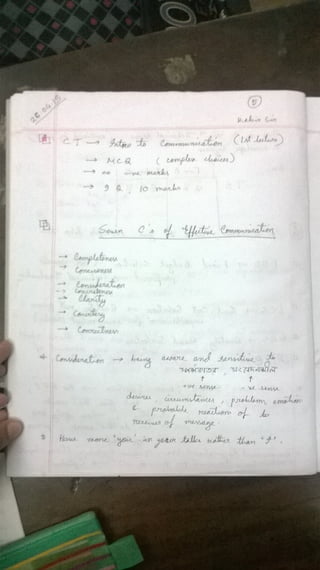 ①
Rakin Sir
CT → Intro to Communication (1st lecture)
→ MCQ (complex choices)
→ no -ive marks
→ 9 Q, 10 marks
Seven C's of Effective Communication
→ Completeness
→ Conciseness
→ Consideration
→ Concreteness
→ Clarity
→ Courtesy
→ Correctness
Consideration → being aware and sensitive to
+ve sense -ve sense
desires, circumstances, problem, emotion
& probable reaction of to
receiver of message
Have more "you" in your talks rather than "I".